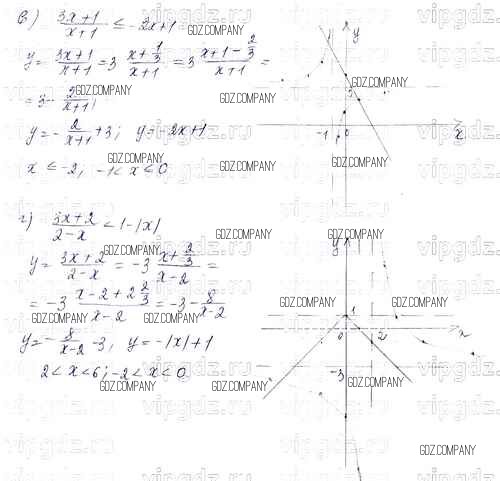 в) (3x+1)/(x+1) ≤ -2x+1
y = (3x+1)/(x+1) = 3 (x+1/3)/(x+1) = 3 (x+1-2/3)/(x+1) =
= 3 - 2/(x+1);
y = -2/(x+1) + 3; y = -2x+1
x ≤ -2, -1 < x ≤ 0
г) (3x+2)/(2-x) < 1-|x|
y = (3x+2)/(2-x) = -3 (x+2/3)/(x-2) =
= -3 (x-2+2 2/3)/(x-2) = -3 - 8/(x-2)
y = -8/(x-2) - 3, y = -|x|+1
2 < x < 6; -2 < x < 0
y
-1
0
x
y
1
0
2
x
-3
GDZ.COMPANY
vipgdz.ru